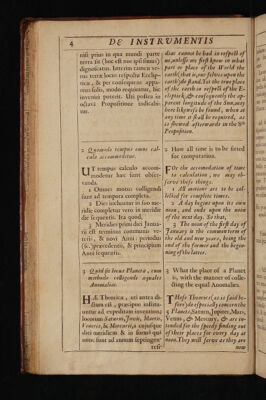 4
DE INSTRVMENTIS
nisi prius in qua mundi parte
terra sit (hoc est nos ipsi simus)
dignoscatur. Interim tamen ve-
rus terræ locus respectu Eclip-
ticæ, & per consequens appa-
rens solis, modo requiratur, hic
inveniri poterit. Uti postea in
octava Propositione indicabi-
tur.
2 Quomodo tempus omne cal-
culo accommodetur.
UT tempus calculo accom-
modetur hæc sunt obser-
vanda.
1 Omnes motus colligendi
sunt ad tempora completa.
2 Dies inchoatur in suo me-
ridie completur vero in meridie
die sequentis. Ita quod,
3 Meridies primi diei Janua-
rii est terminus communis ve-
teris, & novi Anni: periodus
præcedentis, & principium
Anni sequentis.
3 Quid sit locus Planetæ, cum
methodo colligendi æquales
Anomalias.
Hæ Theoricæ, uti antea di-
ctum est, præcipue institu-
untur ad expeditam inventionem
locorum Saturni, Jovis, Martis,
Veneris, & Mercurii, in cujusque
diei meridiem &
sunt ad annum
diar cannot be had in respect of
us, unless we first know in what
part or place of the World the
earth, that is, our selves upon the
earth do stand. Yet the true place
of the earth in respect of the E-
cliptick, & consequently the ap-
parent longitude of the Sun, may
here likewise be found, when at
any time it shall be required, as
is shewed afterwards in the 8th
Proposition.
2 How all time is to be fitted
for computation.
FOr the accomodation of time
to calculation, we may ob-
serve these things.
1 All motions are to be col-
lected for complete times.
2 A day begins upon its own
noon, and ends upon the noon
of the next day. So that,
3 The noon of the first day of
January is the common term of
the old and new years, being the
end of the former and the begin-
ning of the latter.
3 What the place of a Planet
is, with the manner of colle-
cting the equal Anomalies.
THese Theorics (as is said be-
fore) do especially concern the
5 Planets, Saturn, Jupiter, Mars,
Venus, & Mercury, & are in-
tended for the speedy finding out
of their places for every day at
noon. They will serve as they are
now